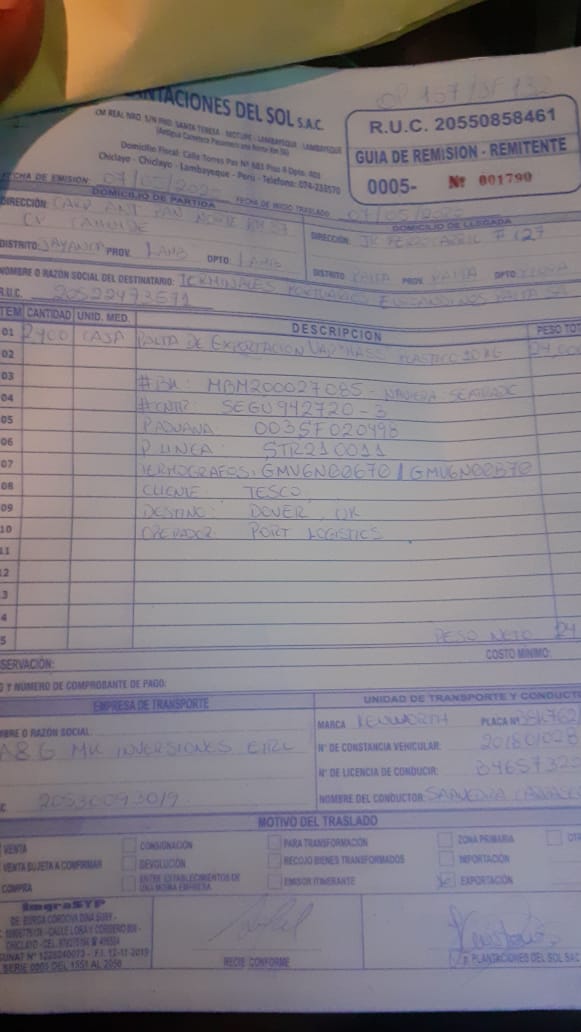 OP 157/SF 132
PLANTACIONES DEL SOL S.A.C.
CM REAL NRO. S/N FND. SANTA TERESA - MOTUPE - LAMBAYEQUE - LAMBAYEQUE
(Antigua Carretera Panamericana Norte Km 56)
Domicilio Fiscal: Calle Torres Paz Nº 581 Piso 8 Dpto. 801
Chiclayo - Chiclayo - Lambayeque - Perú - Telefono: 074-235570
R.U.C. 20550858461
GUIA DE REMISION - REMITENTE
0005- Nº 001790
FECHA DE EMISIÓN: 07/05/202 FECHA DE INICIO TRASLADO 07/05/202
DOMICILIO DE PARTIDA
DIRECCIÓN: CARR ANT PAN NORTE KM 37
CP
DISTRITO: JAYANCA PROV. LAMB DPTO: LAMB
DOMICILIO DE LLEGADA
DIRECCIÓN: JR FERROCARRIL # 127
DISTRITO PAITA PROV PAITA DPTO: PIURA
NOMBRE O RAZÓN SOCIAL DEL DESTINATARIO: TERMINALES PORTUARIOS EUROANDINOS PAITA SA
R.U.C. 20522473571
ITEM CANTIDAD UNID. MED. DESCRIPCION PESO TOT
01 2400 CAJA PALTA DE EXPORTACION VAR HASS PLASTICO 10 KG 24,00
02
03 #BK: MBM200027085 - NAVIERA SEATRADE
04 #CNTR: SEGU 942720-3
05 P.ADUANA: 003SF020498
06 P. LINEA: STR210011
07 TERMOGRAFOS: GMV6N00670 / GMV6N00B70
08 CLIENTE: TESCO
09 DESTINO: DOVER, UK
10 OPERADOR: PORT LOGISTICS
11
12
3
4
5 PESO NETO 24
SERVACIÓN: COSTO MINIMO:
O Y NÚMERO DE COMPROBANTE DE PAGO:
EMPRESA DE TRANSPORTE
MBRE O RAZÓN SOCIAL
A & G MK INVERSIONES EIRL
C 20530093019
UNIDAD DE TRANSPORTE Y CONDUCT
MARCA KENWORTH PLACA Nº
Nº DE CONSTANCIA VEHICULAR: 20180102B
Nº DE LICENCIA DE CONDUCIR: B4657325
NOMBRE DEL CONDUCTOR: SAAVEDRA
MOTIVO DEL TRASLADO
VENTA CONSIGNACIÓN PARA TRANSFORMACIÓN ZONA PRIMARIA OTR
VENTA SUJETA A CONFIRMAR DEVOLUCIÓN RECOJO BIENES TRANSFORMADOS IMPORTACIÓN
COMPRA ENTRE ESTABLECIMIENTOS DE UNA MISMA EMPRESA EMISOR ITINERANTE EXPORTACIÓN
ImgraSYP
DE: BURGA CORDOVA DINA SUSY -
- CALLE LORA Y CORDERO 806 -
CHICLAYO - CEL.
SUNAT Nº 1228240073 - F.I. 12-11-2019
SERIE 0005 DEL 1551 AL 2050
RECIBI CONFORME
P. PLANTACIONES DEL SOL SAC